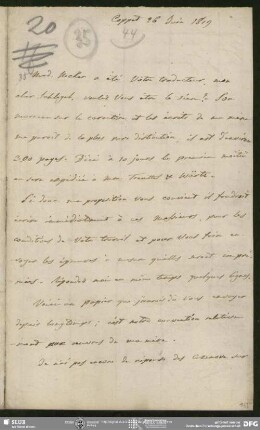 20
35
44
38
Coppet 26 Juin 1809
Mad. Necker a été votre traducteur, mon
cher Schlegel, voulez vous être le sien? Son
morceau sur le caractère et les écrits de ma mère
me paroit de la plus rare distinction, il est
300 pages. D'ici à 10 jours la première moitié
en sera expédiée à mm Treuttel et Würtz.
Si donc ma proposition vous convient il faudroit
écrire immédiatement à ces messieurs, pour les
conditions de votre travail et pour vous faire en
voyer les épreuves à mesure qu'elles seront impri
mées. Répondez moi en même temps quelques lignes.
Voici un papier que j'aurois dû vous envoyer
depuis longtemps; c'est notre convention relative
ment aux oeuvres de ma mère.
Je n'ai pas encore de réponse des
SLUB